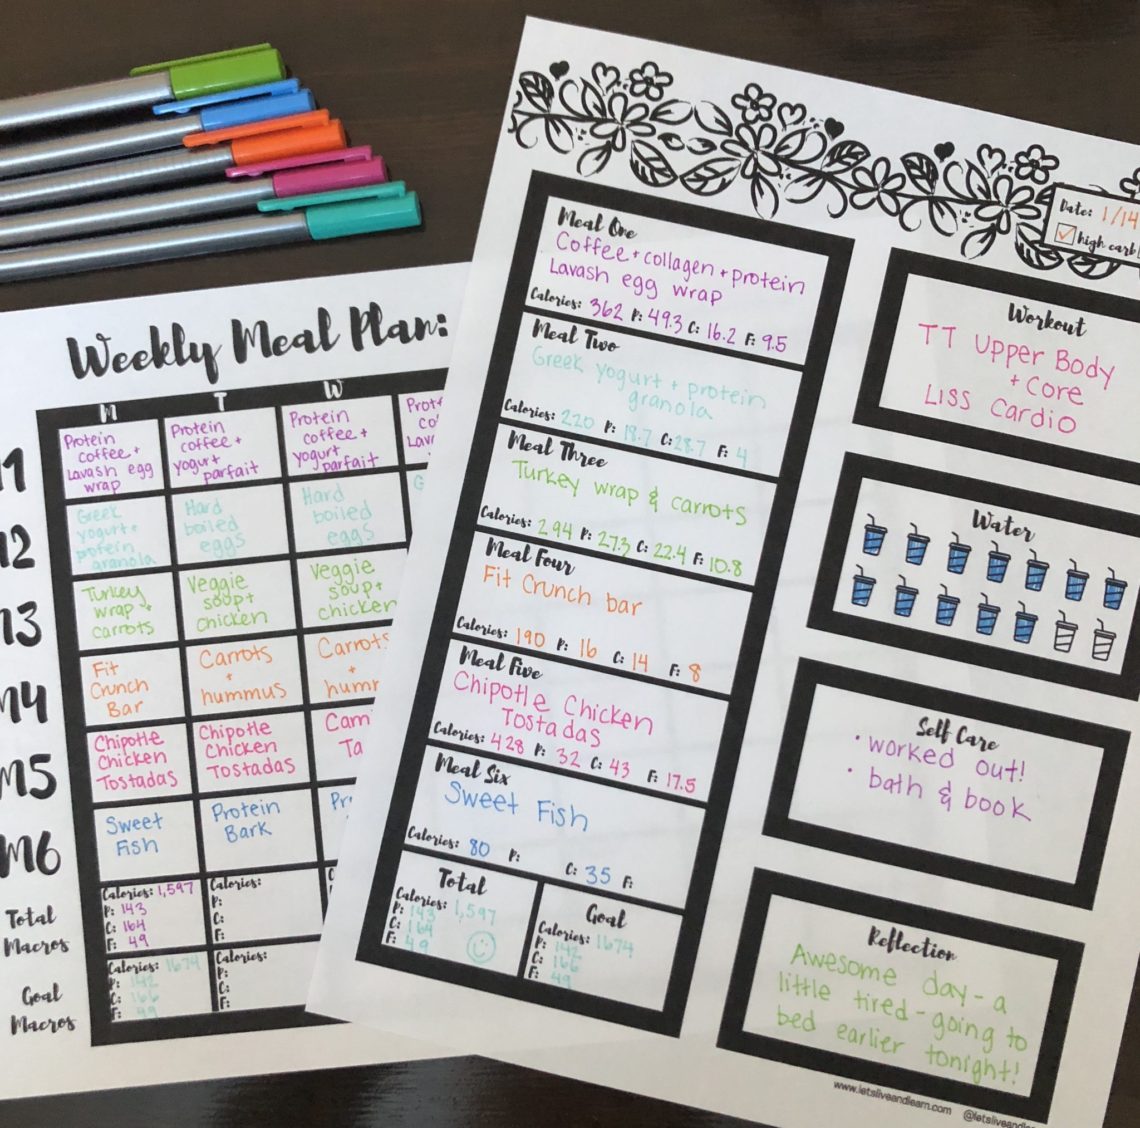 Weekly Meal Plan:
M
T
W
M1
Protein
coffee +
Lavash egg
wrap
Protein
coffee +
yogurt
parfait
Protein
coffee +
yogurt
parfait
M2
Greek
yogurt +
protein
granola
Hard
boiled
eggs
Hard
boiled
eggs
M3
Turkey
wrap +
carrots
Veggie
soup +
chicken
Veggie
soup +
chicken
M4
Fit
Crunch
Bar
Carrots
+
hummus
Carrots
+
M5
Chipotle
Chicken
Tostadas
Chipotle
Chicken
Tostadas
M6
Sweet
Fish
Protein
Bark
Total
Macros
Calories: 1,597
P: 143
C: 164
F: 49
Calories:
P:
C:
F:
Goal
Macros
Calories: 1674
P: 142
C: 166
F: 49
Calories:
P:
C:
F:
Date: 1/14
high carb
Meal One
Coffee + collagen + protein
Lavash egg wrap
Calories: 362 P: 49.3 C: 16.2 F: 9.5
Meal Two
Greek yogurt + protein
granola
Calories: 220 P: 18.7 C: 28.7 F: 4
Meal Three
Turkey wrap & carrots
Calories: 294 P: 27.3 C: 22.4 F: 10.8
Meal Four
Fit Crunch bar
Calories: 190 P: 16 C: 14 F: 8
Meal Five
Chipotle Chicken
Tostadas
Calories: 428 P: 32 C: 43 F: 17.5
Meal Six
Sweet Fish
Calories: 80 P: C: 35 F:
Total
Calories: 1,597
P: 143
C: 164
F: 49
Goal
Calories: 1674
P: 142
C: 166
F: 49
Workout
TT Upper Body
+ Core
LISS Cardio
Water
Self Care
• worked out!
• bath & book
Reflection
Awesome day - a
little tired - going to
bed earlier tonight!
www.letsliveandlearn.com